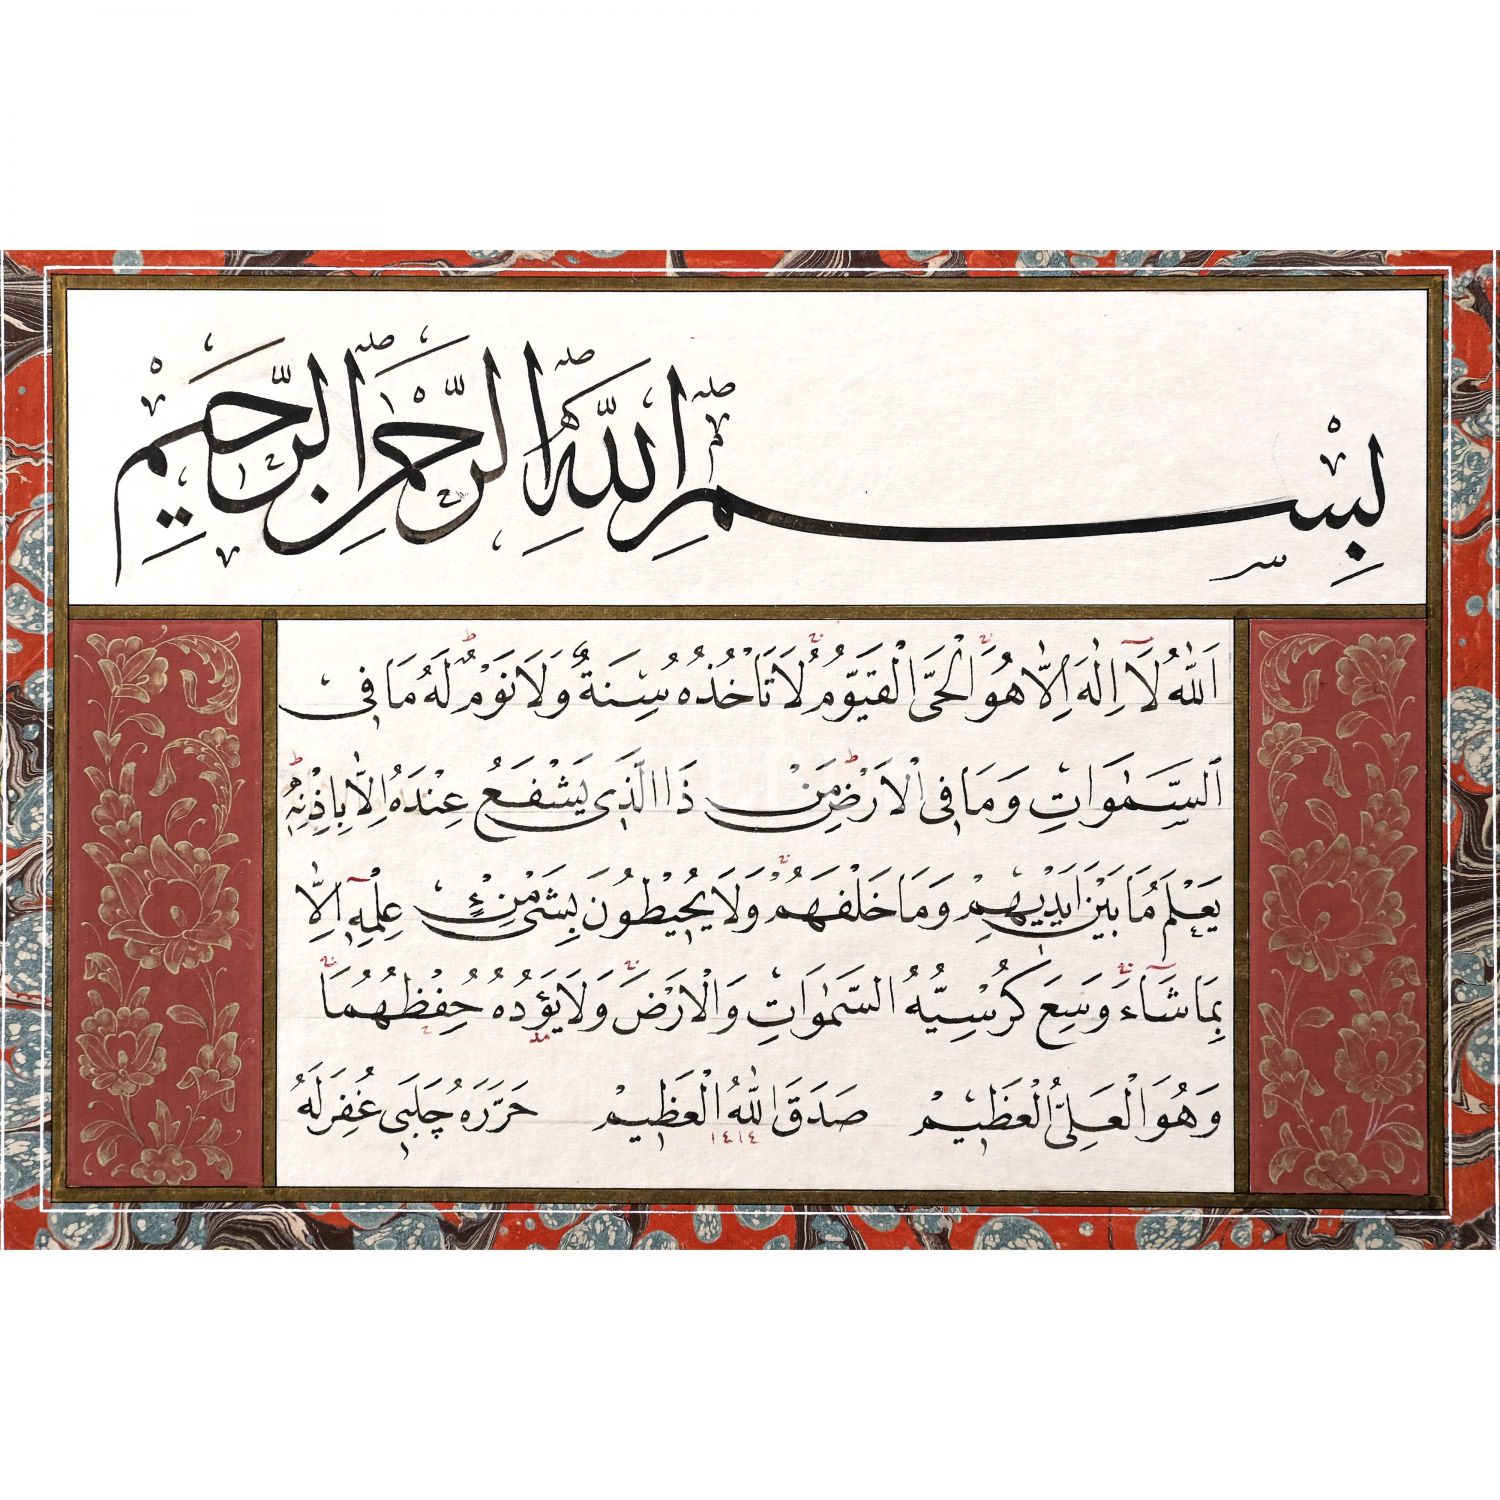 بِسْمِ اللّٰهِ الرَّحْمٰنِ الرَّحِيمِ
اَللّٰهُ لَٓا اِلٰهَ اِلَّا هُوَ الْحَيُّ الْقَيُّومُ لَا تَأْخُذُهُ سِنَةٌ وَلَا نَوْمٌ لَهُ مَا فِي
السَّمٰوَاتِ وَمَا فِي الْاَرْضِ مَنْ ذَا الَّذِي يَشْفَعُ عِنْدَهُ اِلَّا بِاِذْنِهِ
يَعْلَمُ مَا بَيْنَ اَيْدِيهِمْ وَمَا خَلْفَهُمْ وَلَا يُحِيطُونَ بِشَيْءٍ مِنْ عِلْمِهِٓ اِلَّا
بِمَا شَٓاءَ وَسِعَ كُرْسِيُّهُ السَّمٰوَاتِ وَالْاَرْضَ وَلَا يَؤُدُهُ حِفْظُهُمَا
وَهُوَ الْعَلِيُّ الْعَظِيمُ صَدَقَ اللّٰهُ الْعَظِيمُ حَرَّرَهُ چَلَبِي غُفِرَ لَهُ
١٤١٤